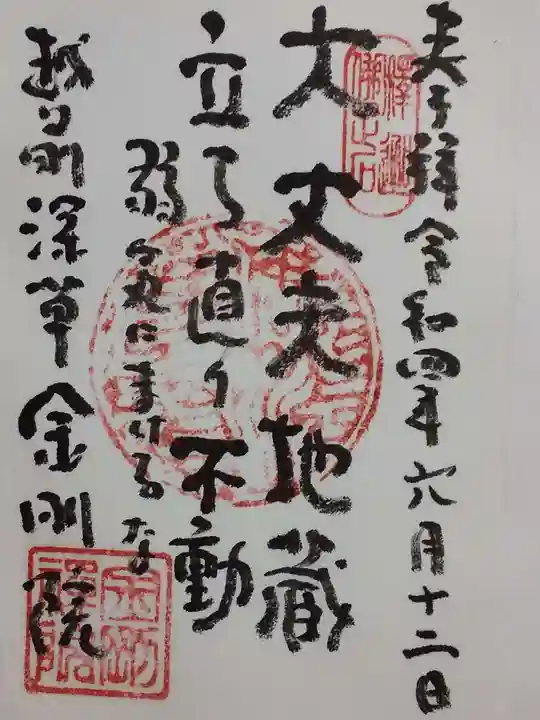 奉拝 令和四年六月十二日
大丈夫地蔵
立ち直り不動
弱気にまけるな
越前深草金剛院